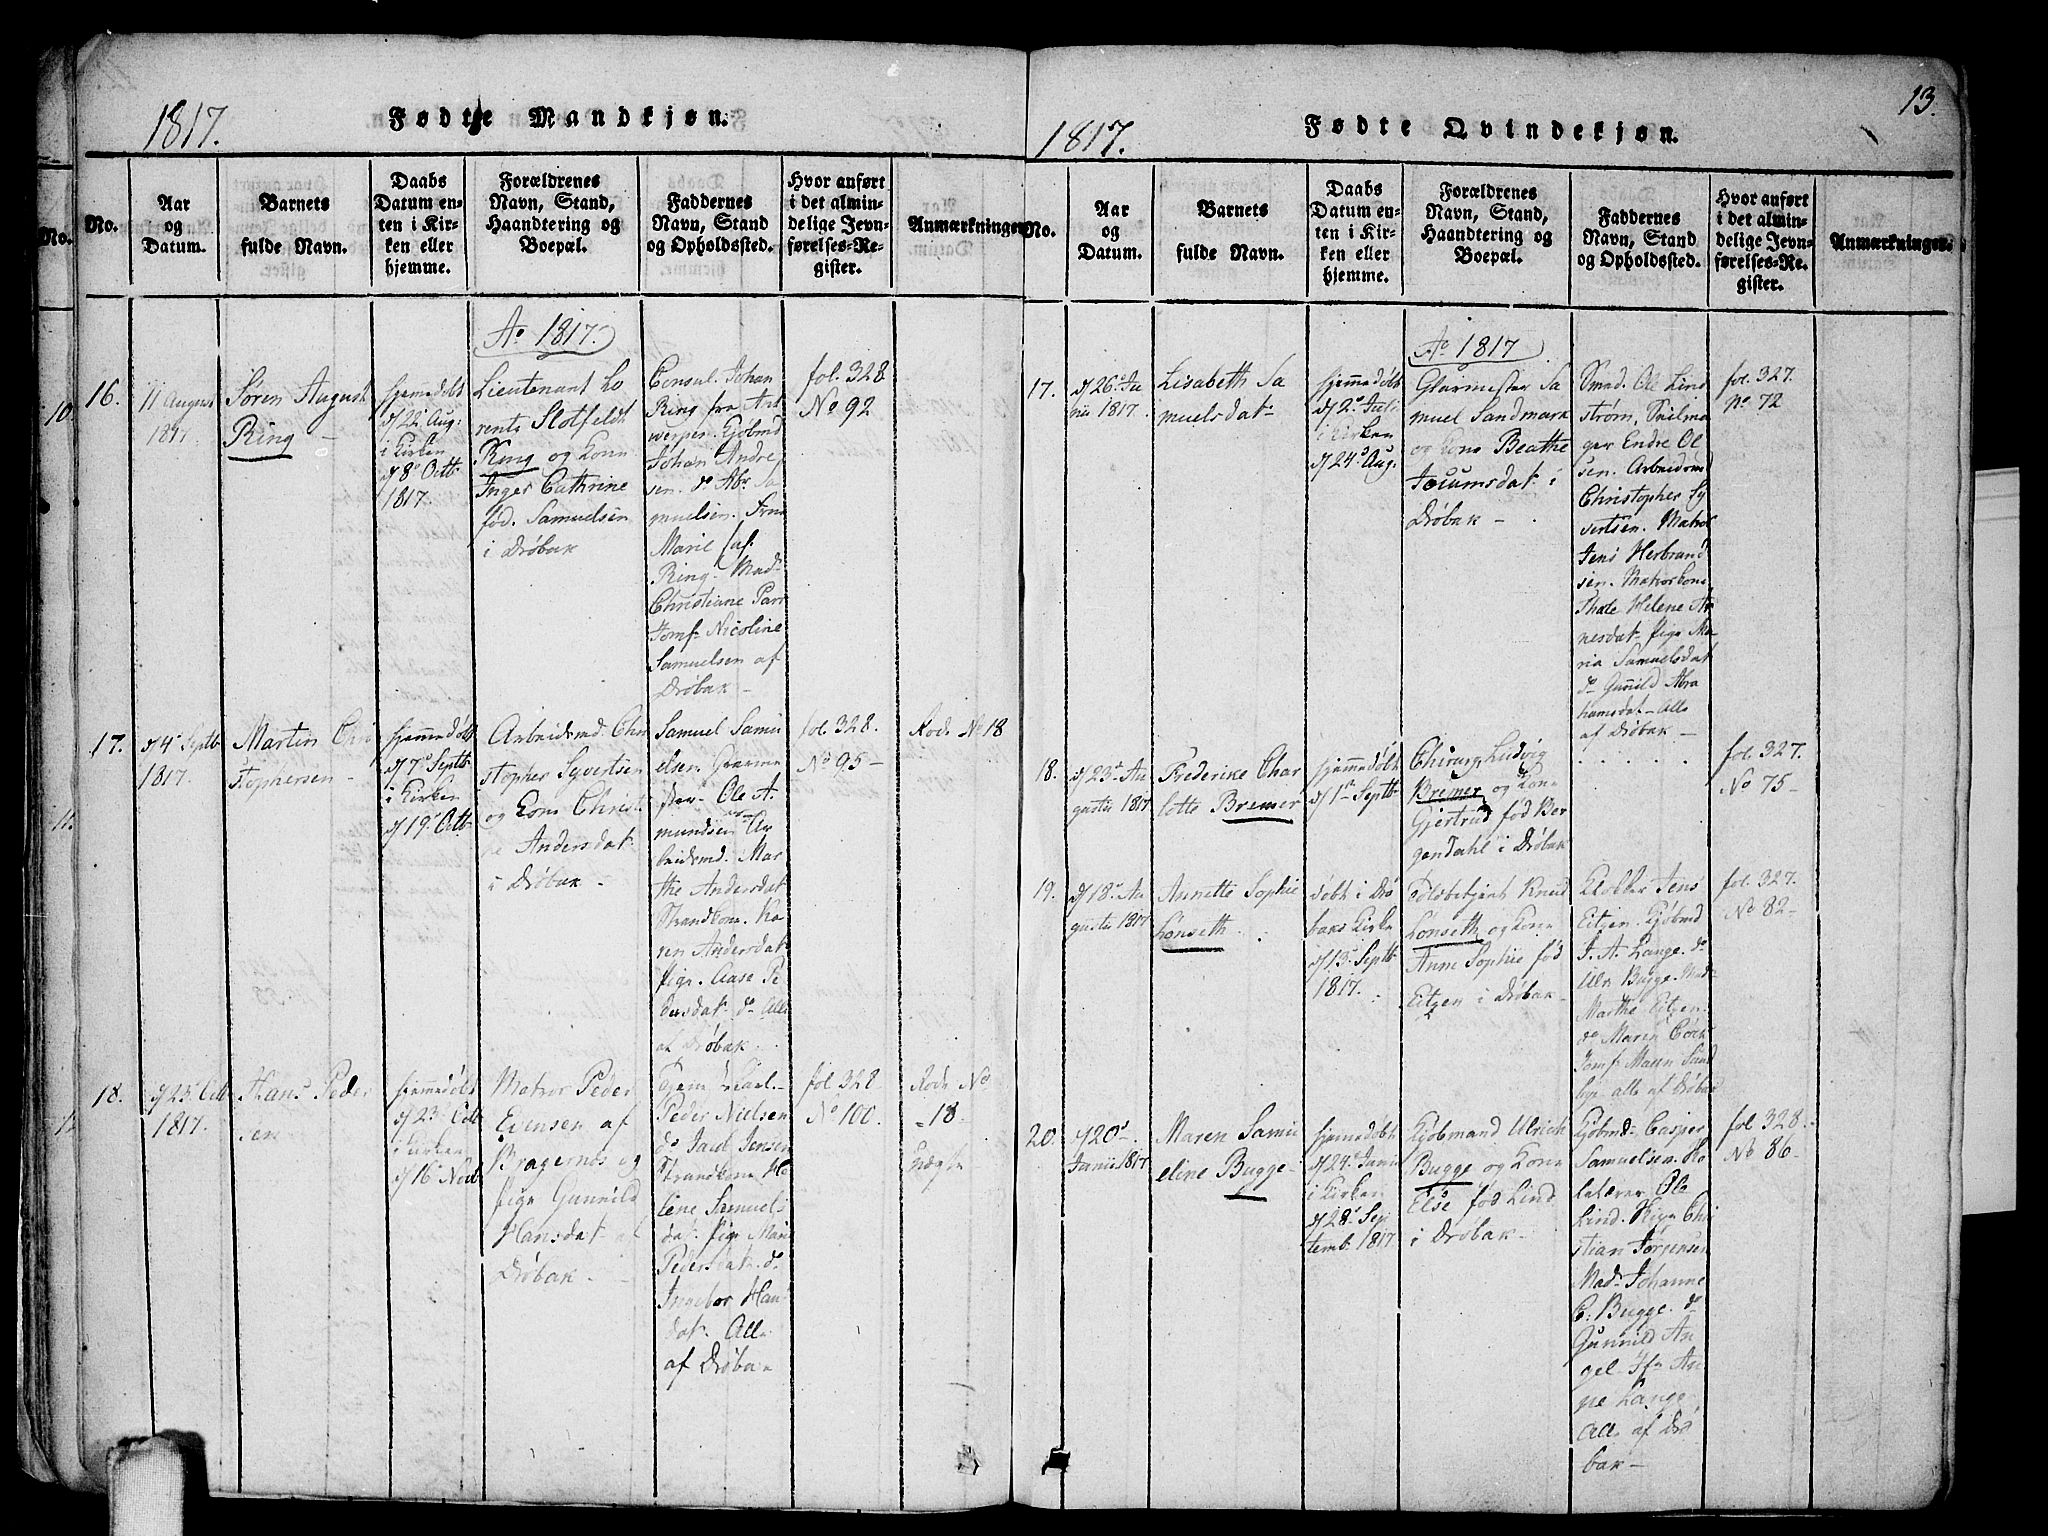 1817.
Fødte Mandkjøn.
No.
Aar
og
Datum.
Barnets
fulde Navn.
Daabs
Datum en-
ten i Kir-
ken eller
hjemme.
Forældrenes
Navn, Stand,
Haandtering og
Boepæl.
Faddernes
Navn, Stand
og Opholdssted.
Hvor anført
i det almin-
delige Jevn-
førelses-Re-
gister.
Anmærkninger.
Ao 1817.
16.
11 August
1817.
Søren August
Ring –
hjemmedøbt
d 22 Aug:
i Kirken
d 8de Octb
1817.
Lieutenant Lo
rents Slotfeldt
Ring og Kone
Inger Cathrine
fød. Samuelsen
i Drøbak
Consul. Johan
Ring fra Ant
werpen. Kjøbmd
Johan Andre
sen. do Abr. Sa
muelsen. Frue
Marie
Ring. Mad
Christiane Parr
Jomf. Nicoline
Samuelsen af
Drøbak –
fol. 328
No 92
17.
d 4 Septb
1817.
Martin Chri
stophersen –
hjemmedøbt
d 7 Septb
i Kirken
d 19 Octb
Arbeidsmd. Chri
stopher Syvertsen
og Kone Christi
ne Andersdat
i Drøbak –
Samuel Samu
elsen. Glarme
ster. Ole A
mundsen Ar
beidsmd. Mar
the Andersdat
Strandkone. Ka
ren Andersdat
Pige. Aase Pe
dersdat. do Alle
af Drøbak.
fol. 328.
No 95 –
Rode No 18
18.
d 23 Octb
1817.
Hans Peder
sen
hjemmedøbt
d 23 Octb
i Kirken
d 16 Novb
Matros Peder
Evensen af
Bragernes og
Pige Gunnild
Hansdat af
Drøbak –
Peder Nielsen
do Paul Jensen
Strandkone He
lene Samuels
dat. Pige Mari
Pedersdat. do
Ingebor Han
dat. Alle
af Drøbak
fol 328
No 100.
Rode No
18
uægte
1817.
Fødte Qvindekjøn.
13.
No.
Aar
og
Datum.
Barnets
fulde Navn.
Daabs
Datum en-
ten i Kir-
ken eller
hjemme.
Forældrenes
Navn, Stand,
Haandtering og
Boepæl.
Faddernes
Navn, Stand
og Opholdssted.
Hvor anført
i det almin-
delige Jevn-
førelses-Re-
gister.
Anmærkninger.
Ao 1817
17.
d 26 Ju
nii 1817.
Lisabeth Sa
muelsdat
hjemmedøbt
d 2 Juli
i Kirken
d 24 Aug.
Glarmester Sa
muel Sandmark
og Kone Beathe
Jocumsdat i
Drøbak –
Smed. Ole Lind
strøm, Seilma
ger Endre Ol
sen. Arbeidsmd
Christopher Sy
vertsen. Matros
Jens Herbrand
sen. Matroskone
Thale Helene Ar
nesdat. Pige Ma
ria Samuelsdat
do Gunnild Abra
hamsdat – Alle
af Drøbak –
fol. 327.
No 72
18.
d 23 Au
gusti 1817
Frederike Char
lotte Bremer
hjemmedøbt
d 1ste Septb
Chirurg. Ludvig
Bremer og Kone
Gjertrud fød Ber
gendahl i Drøbak
. . . . .
fol. 327.
No 75 –
19.
d 18 Au
gusti 1817
Annette Sophie
Lønseth.
døbt i Drø
baks Kirke
d 13 Septb
1817.
Toldbetjent Knud
Lønseth og Kone
Anne Sophie fød
Eitzen i Drøbak.
Klokker Jens
Eitzen. Kjøbmd
J. A. Lange. do
Ulr. Bugge. Mad
Marthe Eitzen.
do Maren Coch
Jomf. Maren Sund
bye alle af Drøbak
fol. 327.
No 82 –
20.
d 20
Junii 1817
Maren Samu
eline Bugge –
hjemmedøbt
d 24 Junii
i Kirken
d 28 Sep
temb. 1817
Kjøbmand Ulrich
Bugge og Kone
Else fød Lind
i Drøbak –
Kjøbmd. Casper
Samuelsen.
Ole
Lind. Chri
stian Jørgensen
Mad. Johanne
C. Bugge. do
Gunnild An
gel. Jfr An
ne Lange
Alle af Drø
bak –
fol 328.
No 86 –